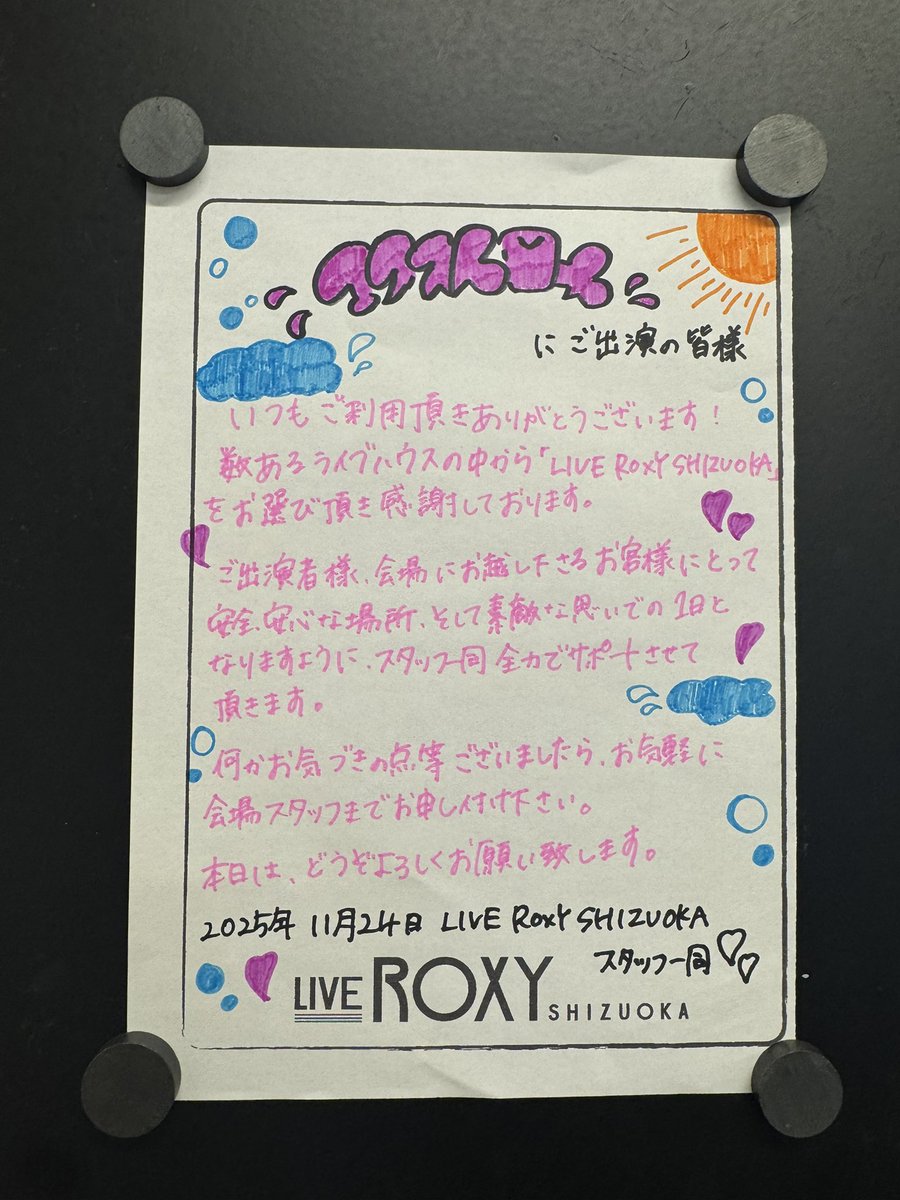 にご出演の皆様
いつもご利用頂きありがとうございます！
数あるライブハウスの中から「LIVE ROXY SHIZUOKA」
をお選び頂き感謝しております。
ご出演者様、会場にお越し下さるお客様にとって
安全、安心な場所、そして素敵な思いでの1日と
なりますように、スタッフ一同 全力でサポートさせて
頂きます。
何かお気づきの点等ございましたら、お気軽に
会場スタッフまでお申し付け下さい。
本日は、どうぞよろしくお願い致します。
2025年 11月24日 LIVE ROXY SHIZUOKA
スタッフ一同
LIVE ROXY SHIZUOKA